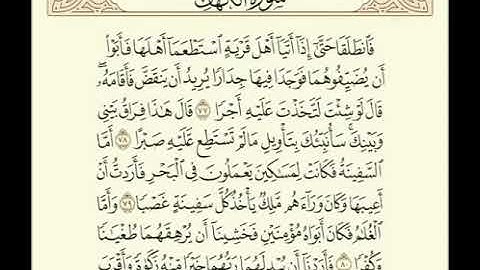 سُورَةُ الكَهْفِ
فَٱنطَلَقَا حَتَّىٰٓ إِذَآ أَتَيَآ أَهْلَ قَرْيَةٍ ٱسْتَطْعَمَآ أَهْلَهَا فَأَبَوْا۟
أَن يُضَيِّفُوهُمَا فَوَجَدَا فِيهَا جِدَارًا يُرِيدُ أَن يَنقَضَّ فَأَقَامَهُۥ ۖ
قَالَ لَوْ شِئْتَ لَتَّخَذْتَ عَلَيْهِ أَجْرًا ٧٧ قَالَ هَٰذَا فِرَاقُ بَيْنِى
وَبَيْنِكَ ۚ سَأُنَبِّئُكَ بِتَأْوِيلِ مَا لَمْ تَسْتَطِع عَّلَيْهِ صَبْرًا ٧٨ أَمَّا
ٱلسَّفِينَةُ فَكَانَتْ لِمَسَٰكِينَ يَعْمَلُونَ فِى ٱلْبَحْرِ فَأَرَدتُّ أَنْ
أَعِيبَهَا وَكَانَ وَرَآءَهُم مَّلِكٌ يَأْخُذُ كُلَّ سَفِينَةٍ غَصْبًا ٧٩ وَأَمَّا
ٱلْغُلَٰمُ فَكَانَ أَبَوَاهُ مُؤْمِنَيْنِ فَخَشِينَآ أَن يُرْهِقَهُمَا طُغْيَٰنًا
وَكُفْرًا ٨٠ فَأَرَدْنَآ أَن يُبْدِلَهُمَا رَبُّهُمَا خَيْرًا مِّنْهُ زَكَوٰةً وَأَقْرَبَ